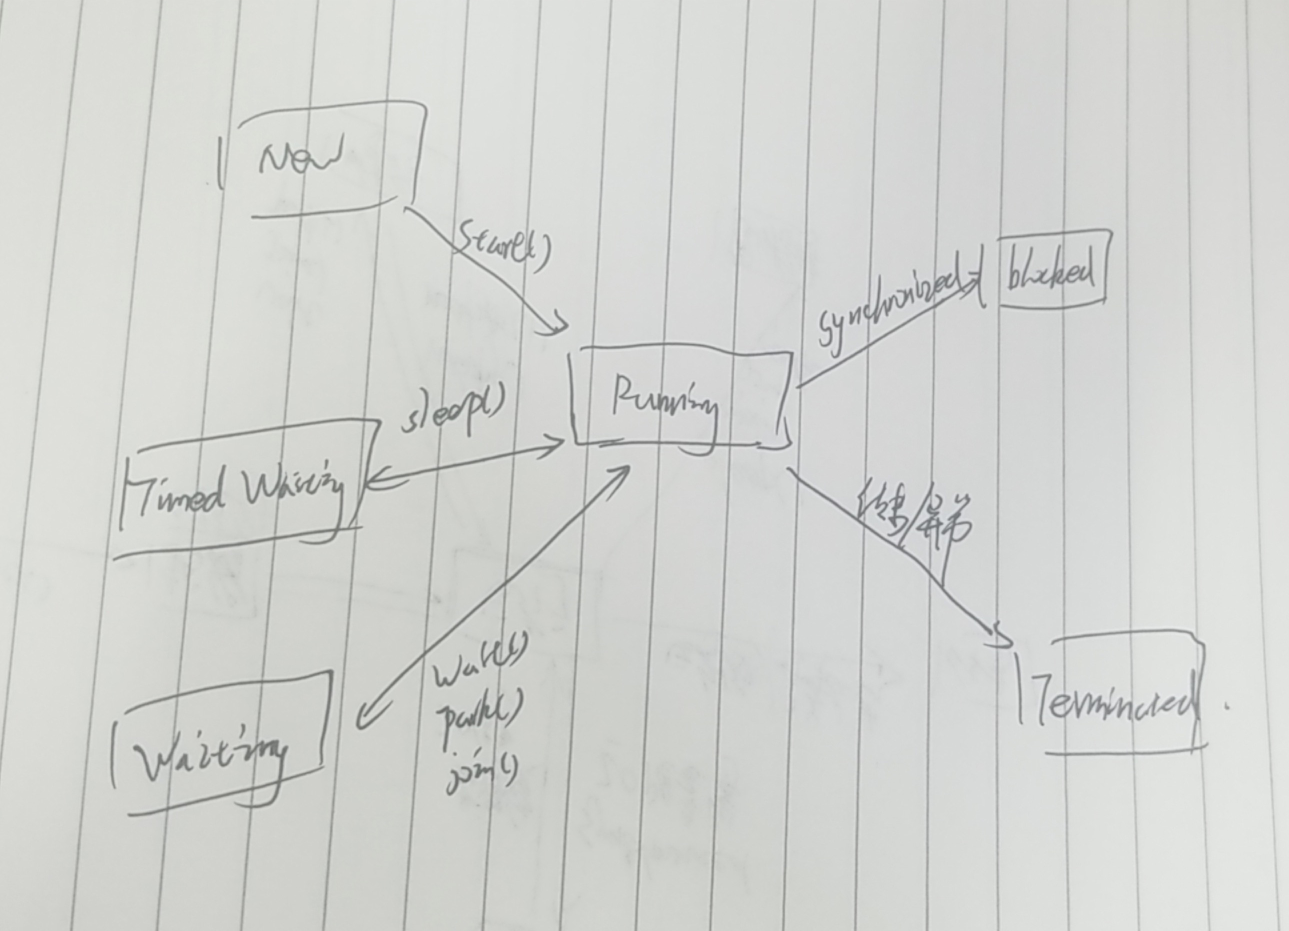 New
start()
synchronized
blocked
Running
sleep()
Timed Waiting
结束/异常
wait()
park()
join()
Waiting
Terminated